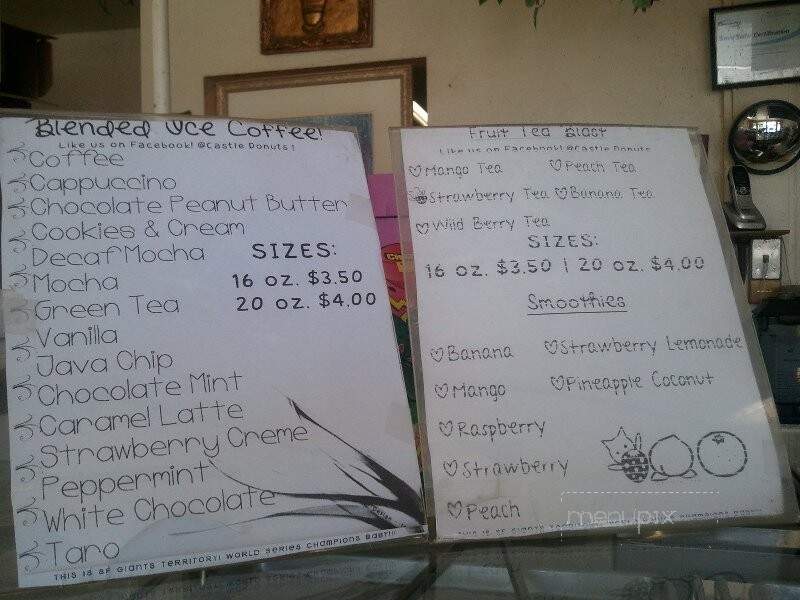 Blended Ice Coffee!
Like us on Facebook! @Castle Donuts!
Coffee
Cappuccino
Chocolate Peanut Butter
Cookies & Cream
Decaf Mocha
Mocha
Green Tea
Vanilla
Java Chip
Chocolate Mint
Caramel Latte
Strawberry Creme
Peppermint
White Chocolate
Taro
SIZES:
16 oz. $3.50
20 oz. $4.00
THIS IS SF GIANTS TERRITORY! WORLD SERIES CHAMPIONS BABY!!
Fruit Tea Blast
Like us on Facebook! @Castle Donuts
Mango Tea Peach Tea
Strawberry Tea Banana Tea
Wild Berry Tea
SIZES:
16 oz. $3.50 | 20 oz. $4.00
Smoothies
Banana Strawberry Lemonade
Mango Pineapple Coconut
Raspberry
Strawberry
Peach
THIS IS SF GIANTS CHAMPIONS BABY!!
menupix